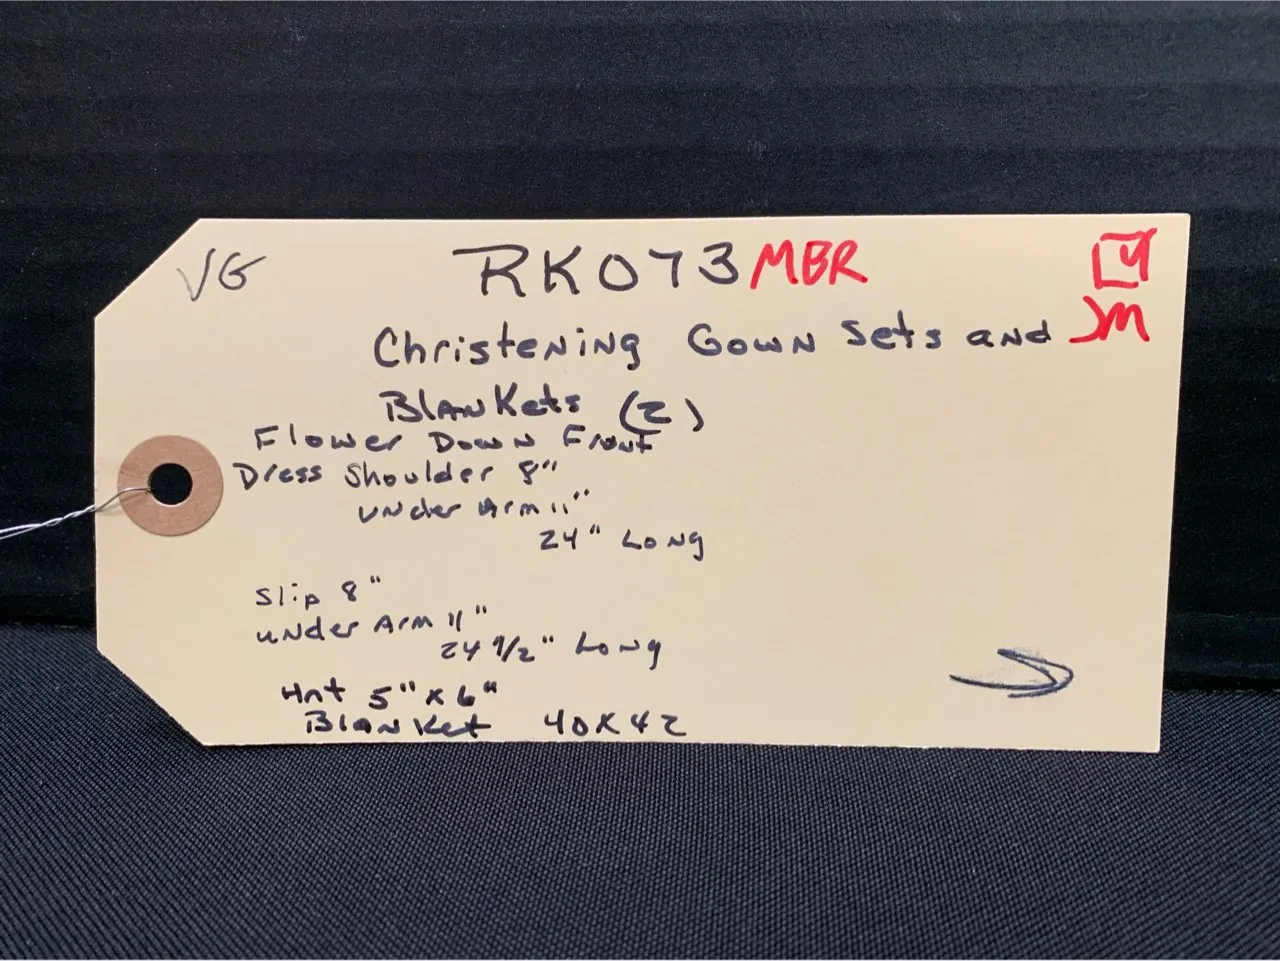 VG RK073 MBR 4
Christening Gown Sets and JM
Blankets (2)
Flower Down Front
Dress Shoulder 8"
under Arm 11"
24" Long
Slip 8"
under Arm 11"
24 1/2" Long
Hat 5" x 6"
Blanket 40x42